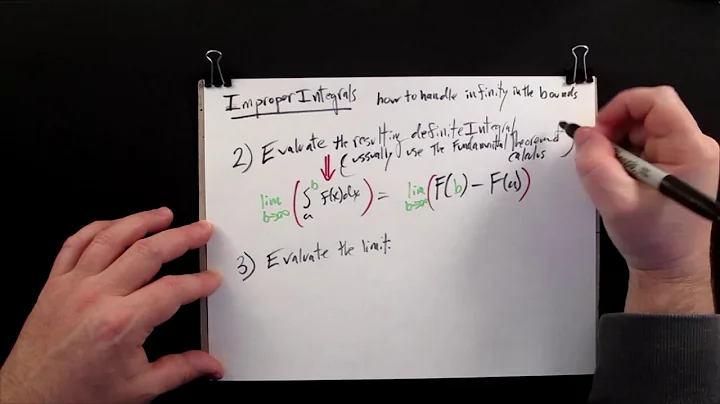 Improper Integrals how to handle infinity in the bounds
2) Evaluate the resulting definite Integral
(ussually use The Fundamental Theorem of
calculus)
lim b→∞ (∫_a^b f(x)dx) = lim b→∞ (F(b) - F(a))
3) Evaluate the limit.